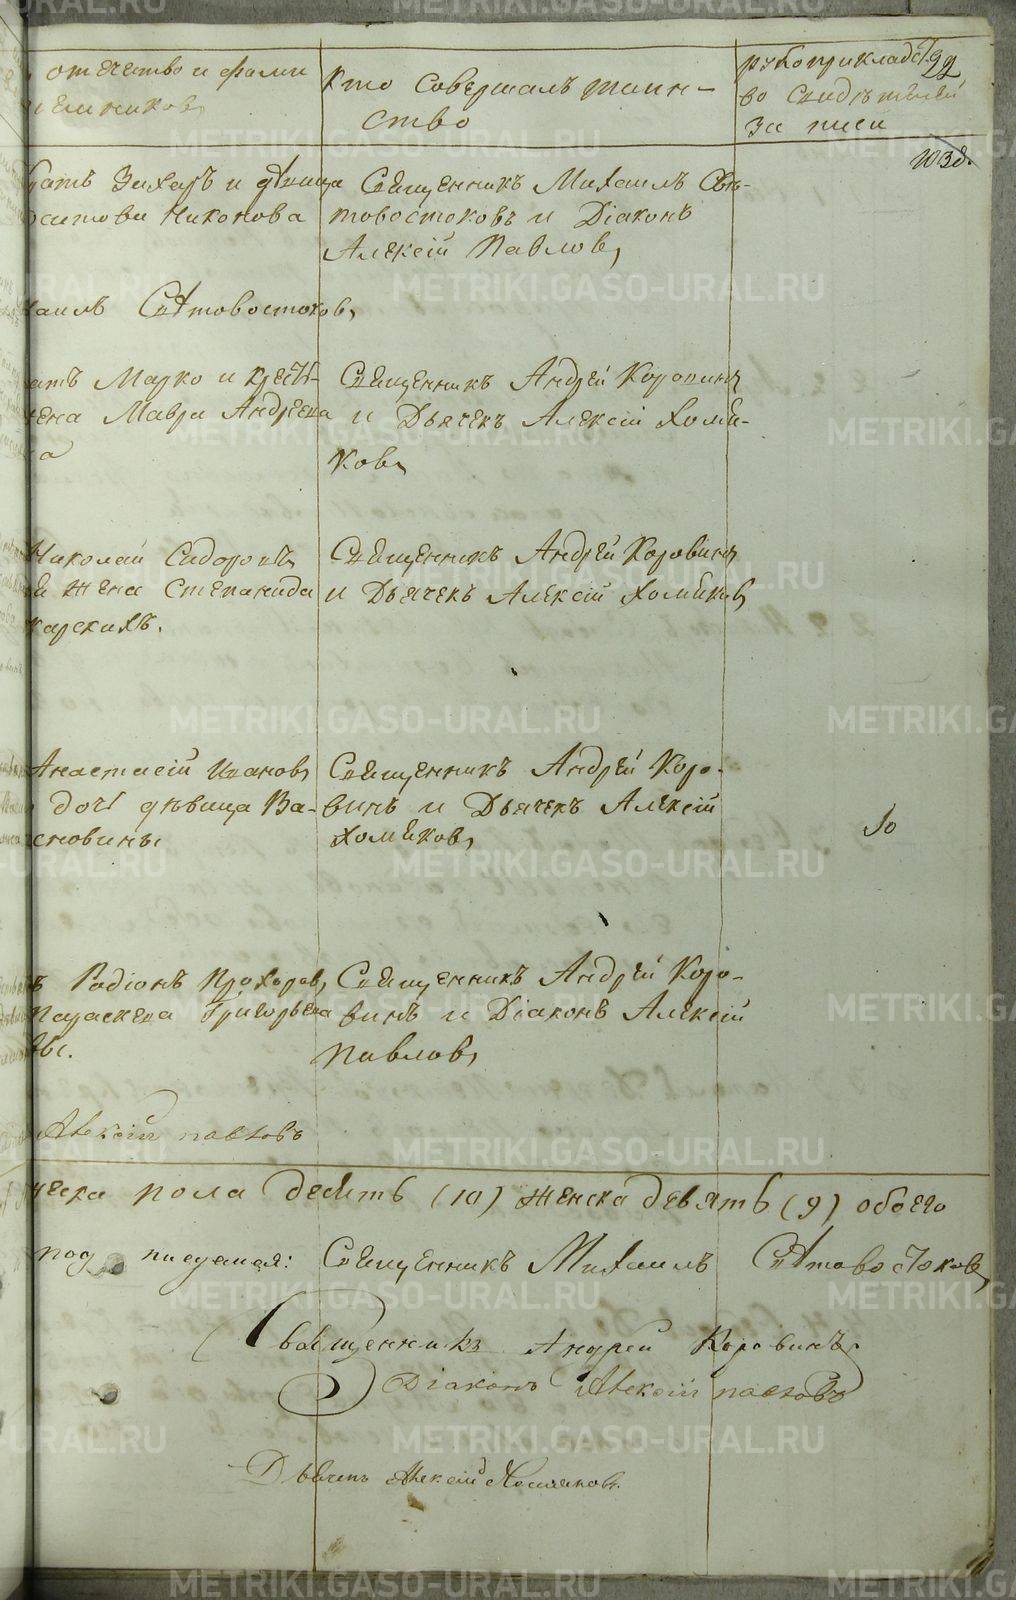 отчество и фами
кто совершалъ таин-
ство
рукоприкладст
во свидѣтелей
за писи
99
1030.
братъ Захаръ и дѣвица
Никонова
Священникъ Михаилъ Свя-
товостоковъ и Діаконъ
Алексій Павловъ
Святовостоковъ
Марко и крестья-
жена Мавра Андреева
Священникъ Андрей Коровинъ
и Дьячекъ Алексій Хомя-
ковъ
Николай Сидоровъ
и жена Степанида
карскихъ.
Священникъ Андрей Коровинъ
и Дьячекъ Алексій Хомяковъ
Анастасій Ивановъ
дочь дѣвица Ва-
сновины
Священникъ Андрей Коро-
винъ и Дьячекъ Алексій
Хомяковъ
10
Родіонъ Прохоровъ
Параскева Григорьева
вы.
Священникъ Андрей Коро-
винъ и Діаконъ Алексій
Павловъ
Алексій Павловъ
ческа пола десять (10) женска девять (9) обоего
под писуемся: Священникъ Михаилъ Святовостоковъ
Священникъ Андрей Коровинъ
Діаконъ Алексій Павловъ
Дьячекъ Алексій Хомяковъ.
METRIKI.GASO-URAL.RU